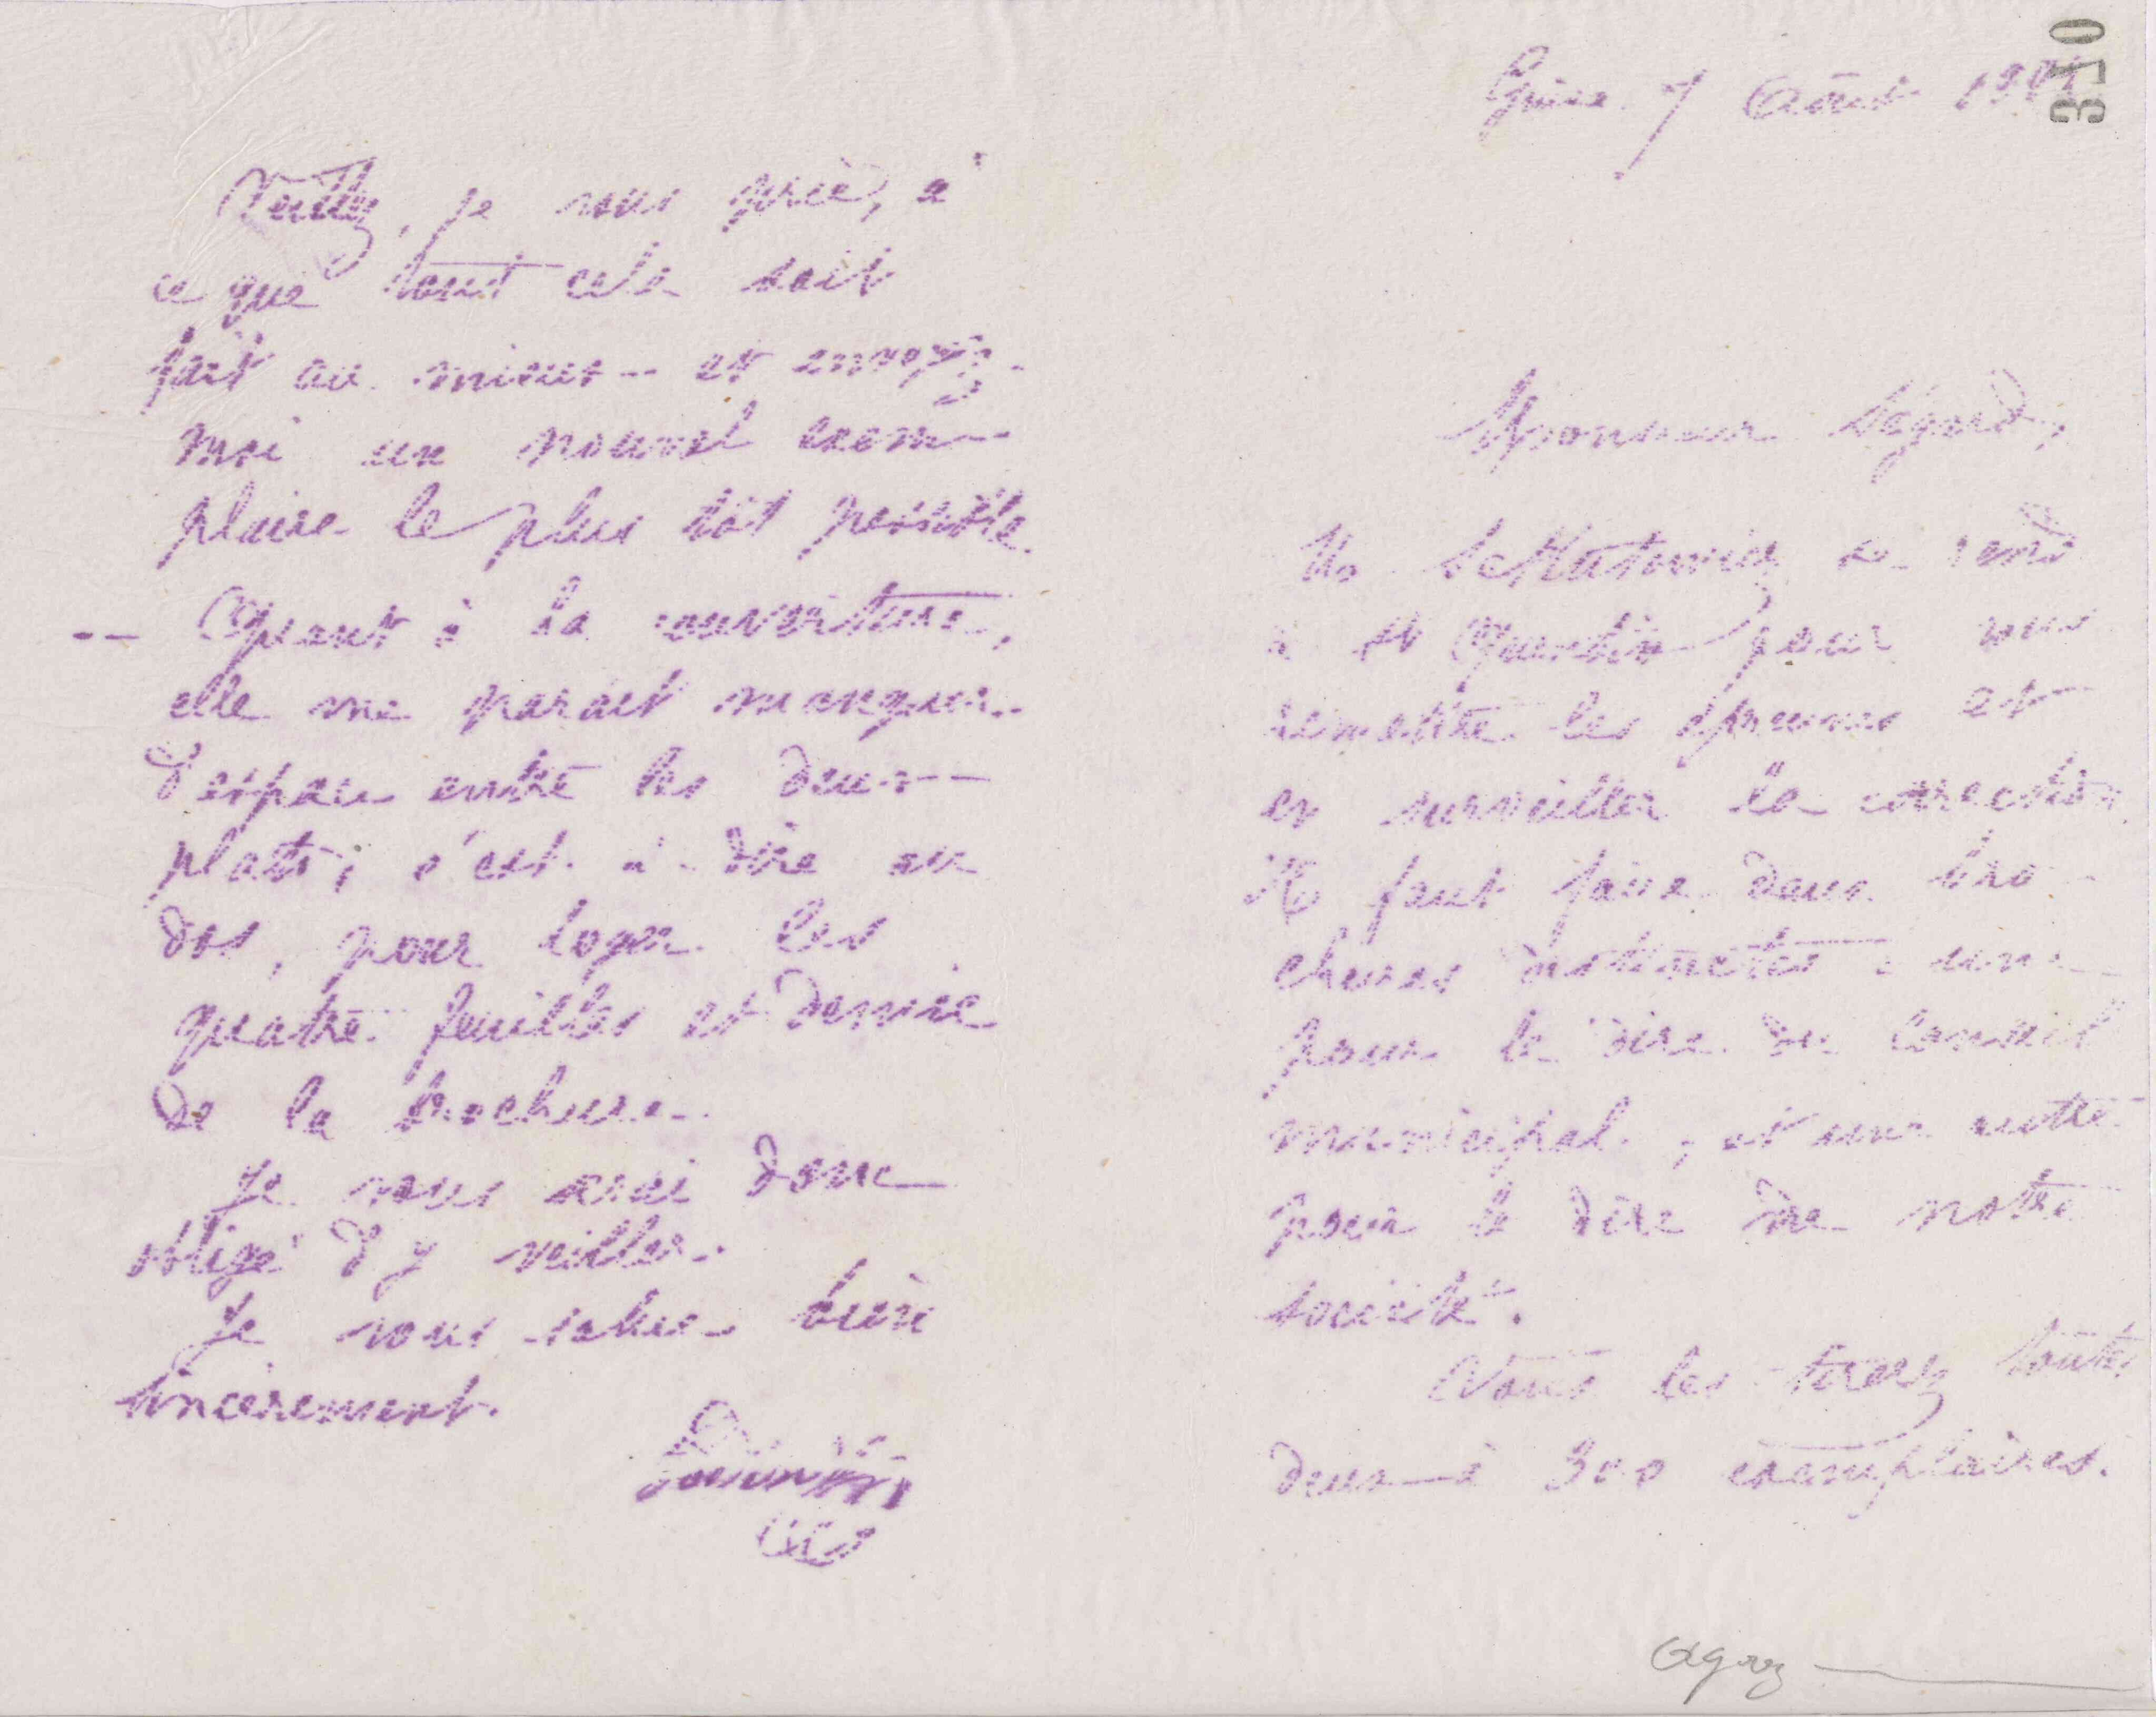 310
Guise 7 Août
Monsieur Ségard,
Mr Sekutowicz se rend
à St Quentin pour vous
remettre les épreuves et
en surveiller la correction.
Il faut faire deux bro-
chures distinctes : une
pour le dire du Conseil
municipal, et une autre
pour le dire de notre
société.
Vous les tirerez toutes
deux à 300 exemplaires.
Veillez, je vous prie, à
ce que tout cela soit
fait au mieux -- et envoyez-
moi un nouvel exem-
plaire le plus tôt possible.
-- Quant à la couverture,
elle me paraît manquer
d'espace entre les deux
plats, c'est-à-dire au
dos, pour loger les
quatre feuilles et demie
de la brochure.
Je vous serai donc
obligé d'y veiller.
Je vous salue bien
sincèrement.